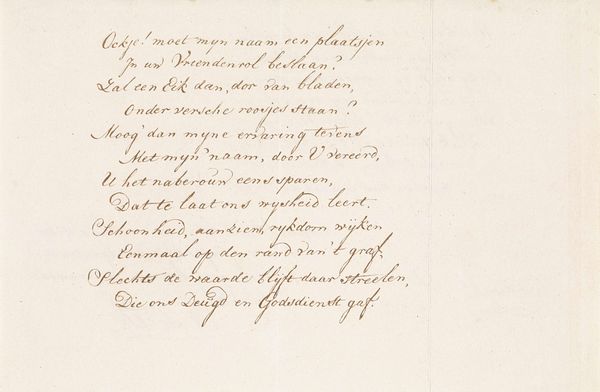 Ockje! moet myn naam een plaatsjen
In uw Vriendenrol beslaan?
Zal een Eik dan, dor van bladen,
Onder versche roosjes staan?
Moog' dan myne ervaring tevens
Met myn' naam, door U vereerd,
U het naberouw eens sparen,
Dat te laat ons wysheid leert.
Schoonheid, aanzien, rykdom wijken
Eenmaal op den rand van 't graf,
Slechts de waarde blijft daar streelen,
Die ons Deugd en Godsdienst gaf.